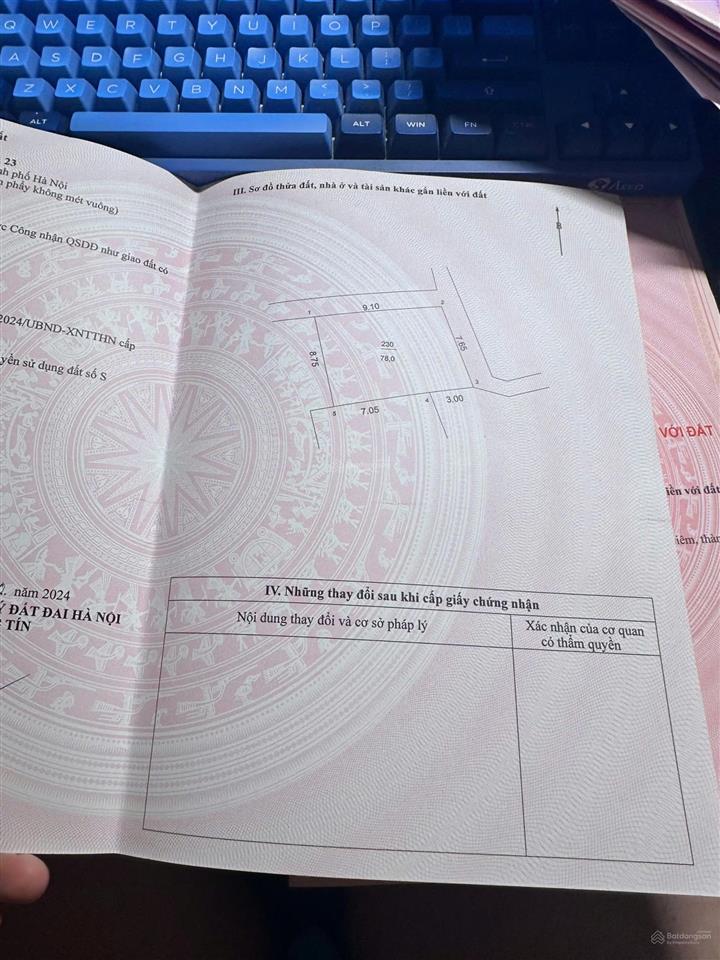 Q W E R T Y U I O P
A S D F G H J K L
Z X C V B N M < > /
ALT ALT WIN FN
ất
23
nh phố Hà Nội
n phẩy không mét vuông)
ức Công nhận QSDĐ như giao đất có
2024/UBND-XNTTHN cấp
yền sử dụng đất số S
năm 2024
Ý ĐẤT ĐAI HÀ NỘI
TÍN
III. Sơ đồ thửa đất, nhà ở và tài sản khác gắn liền với đất
B
1 9.10 2
8.75 230 7.65
78,0
5 7.05 4 3.00 3
IV. Những thay đổi sau khi cấp giấy chứng nhận
Nội dung thay đổi và cơ sở pháp lý
Xác nhận của cơ quan
có thẩm quyền
VỚI ĐẤT
liền với đất
iêm, thàn
Batdongsan